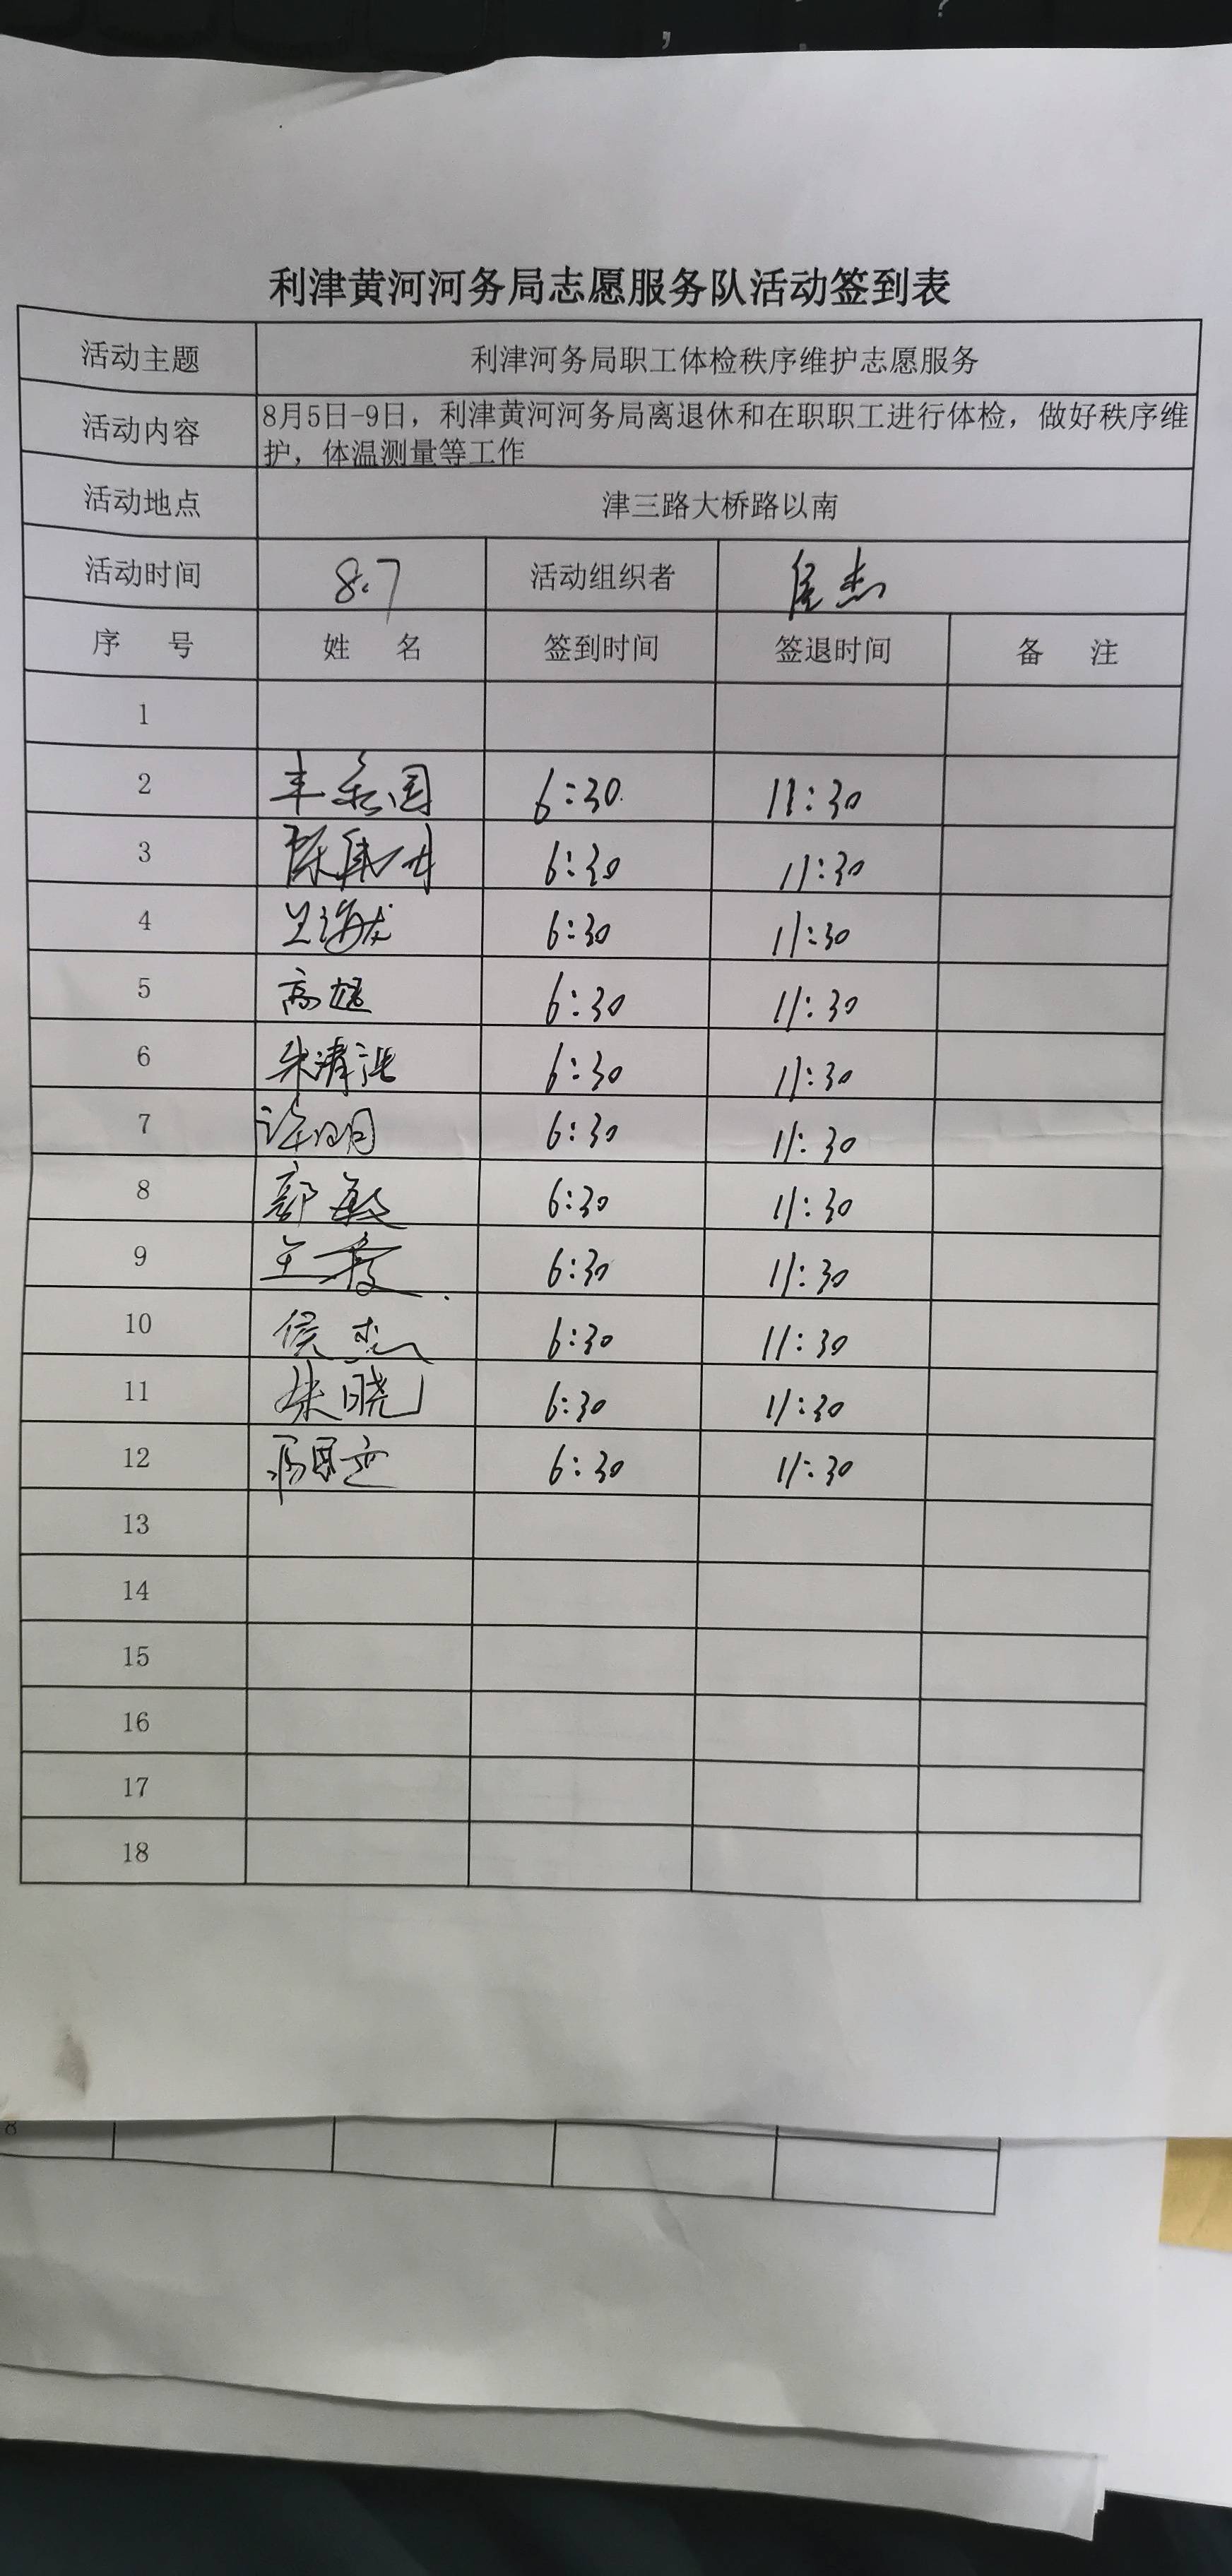 利津黄河河务局志愿服务队活动签到表
活动主题 利津河务局职工体检秩序维护志愿服务
活动内容 8月5日-9日，利津黄河河务局离退休和在职职工进行体检，做好秩序维
护，体温测量等工作
活动地点 津三路大桥路以南
活动时间 8.7 活动组织者 侯杰
序 号 姓 名 签到时间 签退时间 备 注
1
2 6:30 11:30
3 6:30 11:30
4 王海龙 6:30 11:30
5 高雄 6:30 11:30
6 朱清 6:30 11:30
7 许明月 6:30 11:30
8 郭敏 6:30 11:30
9 王 6:30 11:30
10 侯杰 6:30 11:30
11 朱晓 6:30 11:30
12 6:30 11:30
13
14
15
16
17
18
8